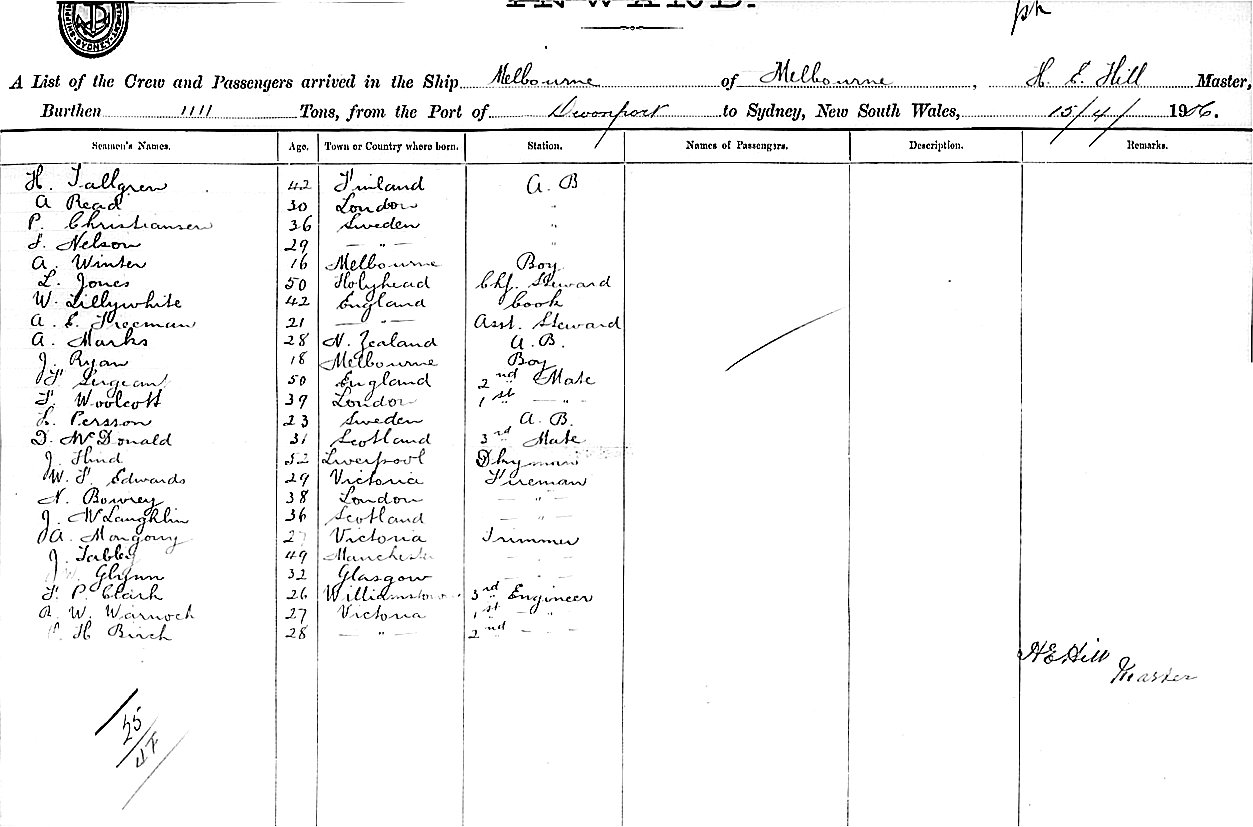 INWARD.
A List of the Crew and Passengers arrived in the Ship Melbourne of Melbourne, H. E. Hill Master,
Burthen 1111 Tons, from the Port of Devonport to Sydney, New South Wales, 15/4/1906.
Seamen's Names. Age. Town or Country where born. Station. Names of Passengers. Description. Remarks.
H. Tallgren 42 Finland A. B
A Read 30 London "
P. Christiansen 36 Sweden "
F. Nelson 29 — " — "
A. Winter 16 Melbourne Boy
L. Jones 50 Holyhead Chf. Steward
W. Lillywhite 42 England Cook
A. E. Freeman 21 — " — Asst. Steward
A. Marks 28 N. Zealand A. B.
J. Ryan 18 Melbourne Boy
F. Sergeant 50 England 2nd Mate
F. Woolcott 39 London 1st — " —
L. Persson 23 Sweden A. B.
D. McDonald 31 Scotland 3rd Mate
J. Hind 52 Liverpool Dkyman
W. F. Edwards 29 Victoria Fireman
N. Bowrey 38 London — " —
J. McLaughlin 36 Scotland — " —
A. 27 Victoria Trimmer
J. 49 Manchester
Glynn 32 Glasgow
F. P. Clark 26 Williamstown 3rd Engineer
R. W. Warnock 27 Victoria 1st — "
H Birch 28 — " — 2nd — " —
H E Hill
Master
25